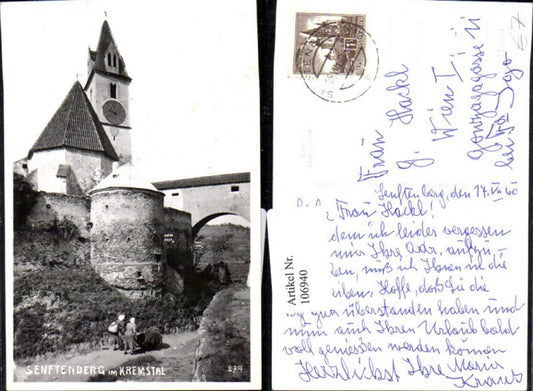 SENFTENBERG IM KREMSTAL
874
Artikel Nr.
106940
67
Frau
G. Hackl
Wien I
Gonzagagasse 11
bei Fa
Senftenberg, den 17. VII 60
Frau Hackl!
dem ich leider vergessen
mir Ihre Adr. aufzu-
ben, muß ich Ihnen in die
Hoffe, daß Sie die
überstanden haben und
nun auch Ihren Urlaub bald
voll genießen werden können
Herzlichst Ihre Maria
Kraus